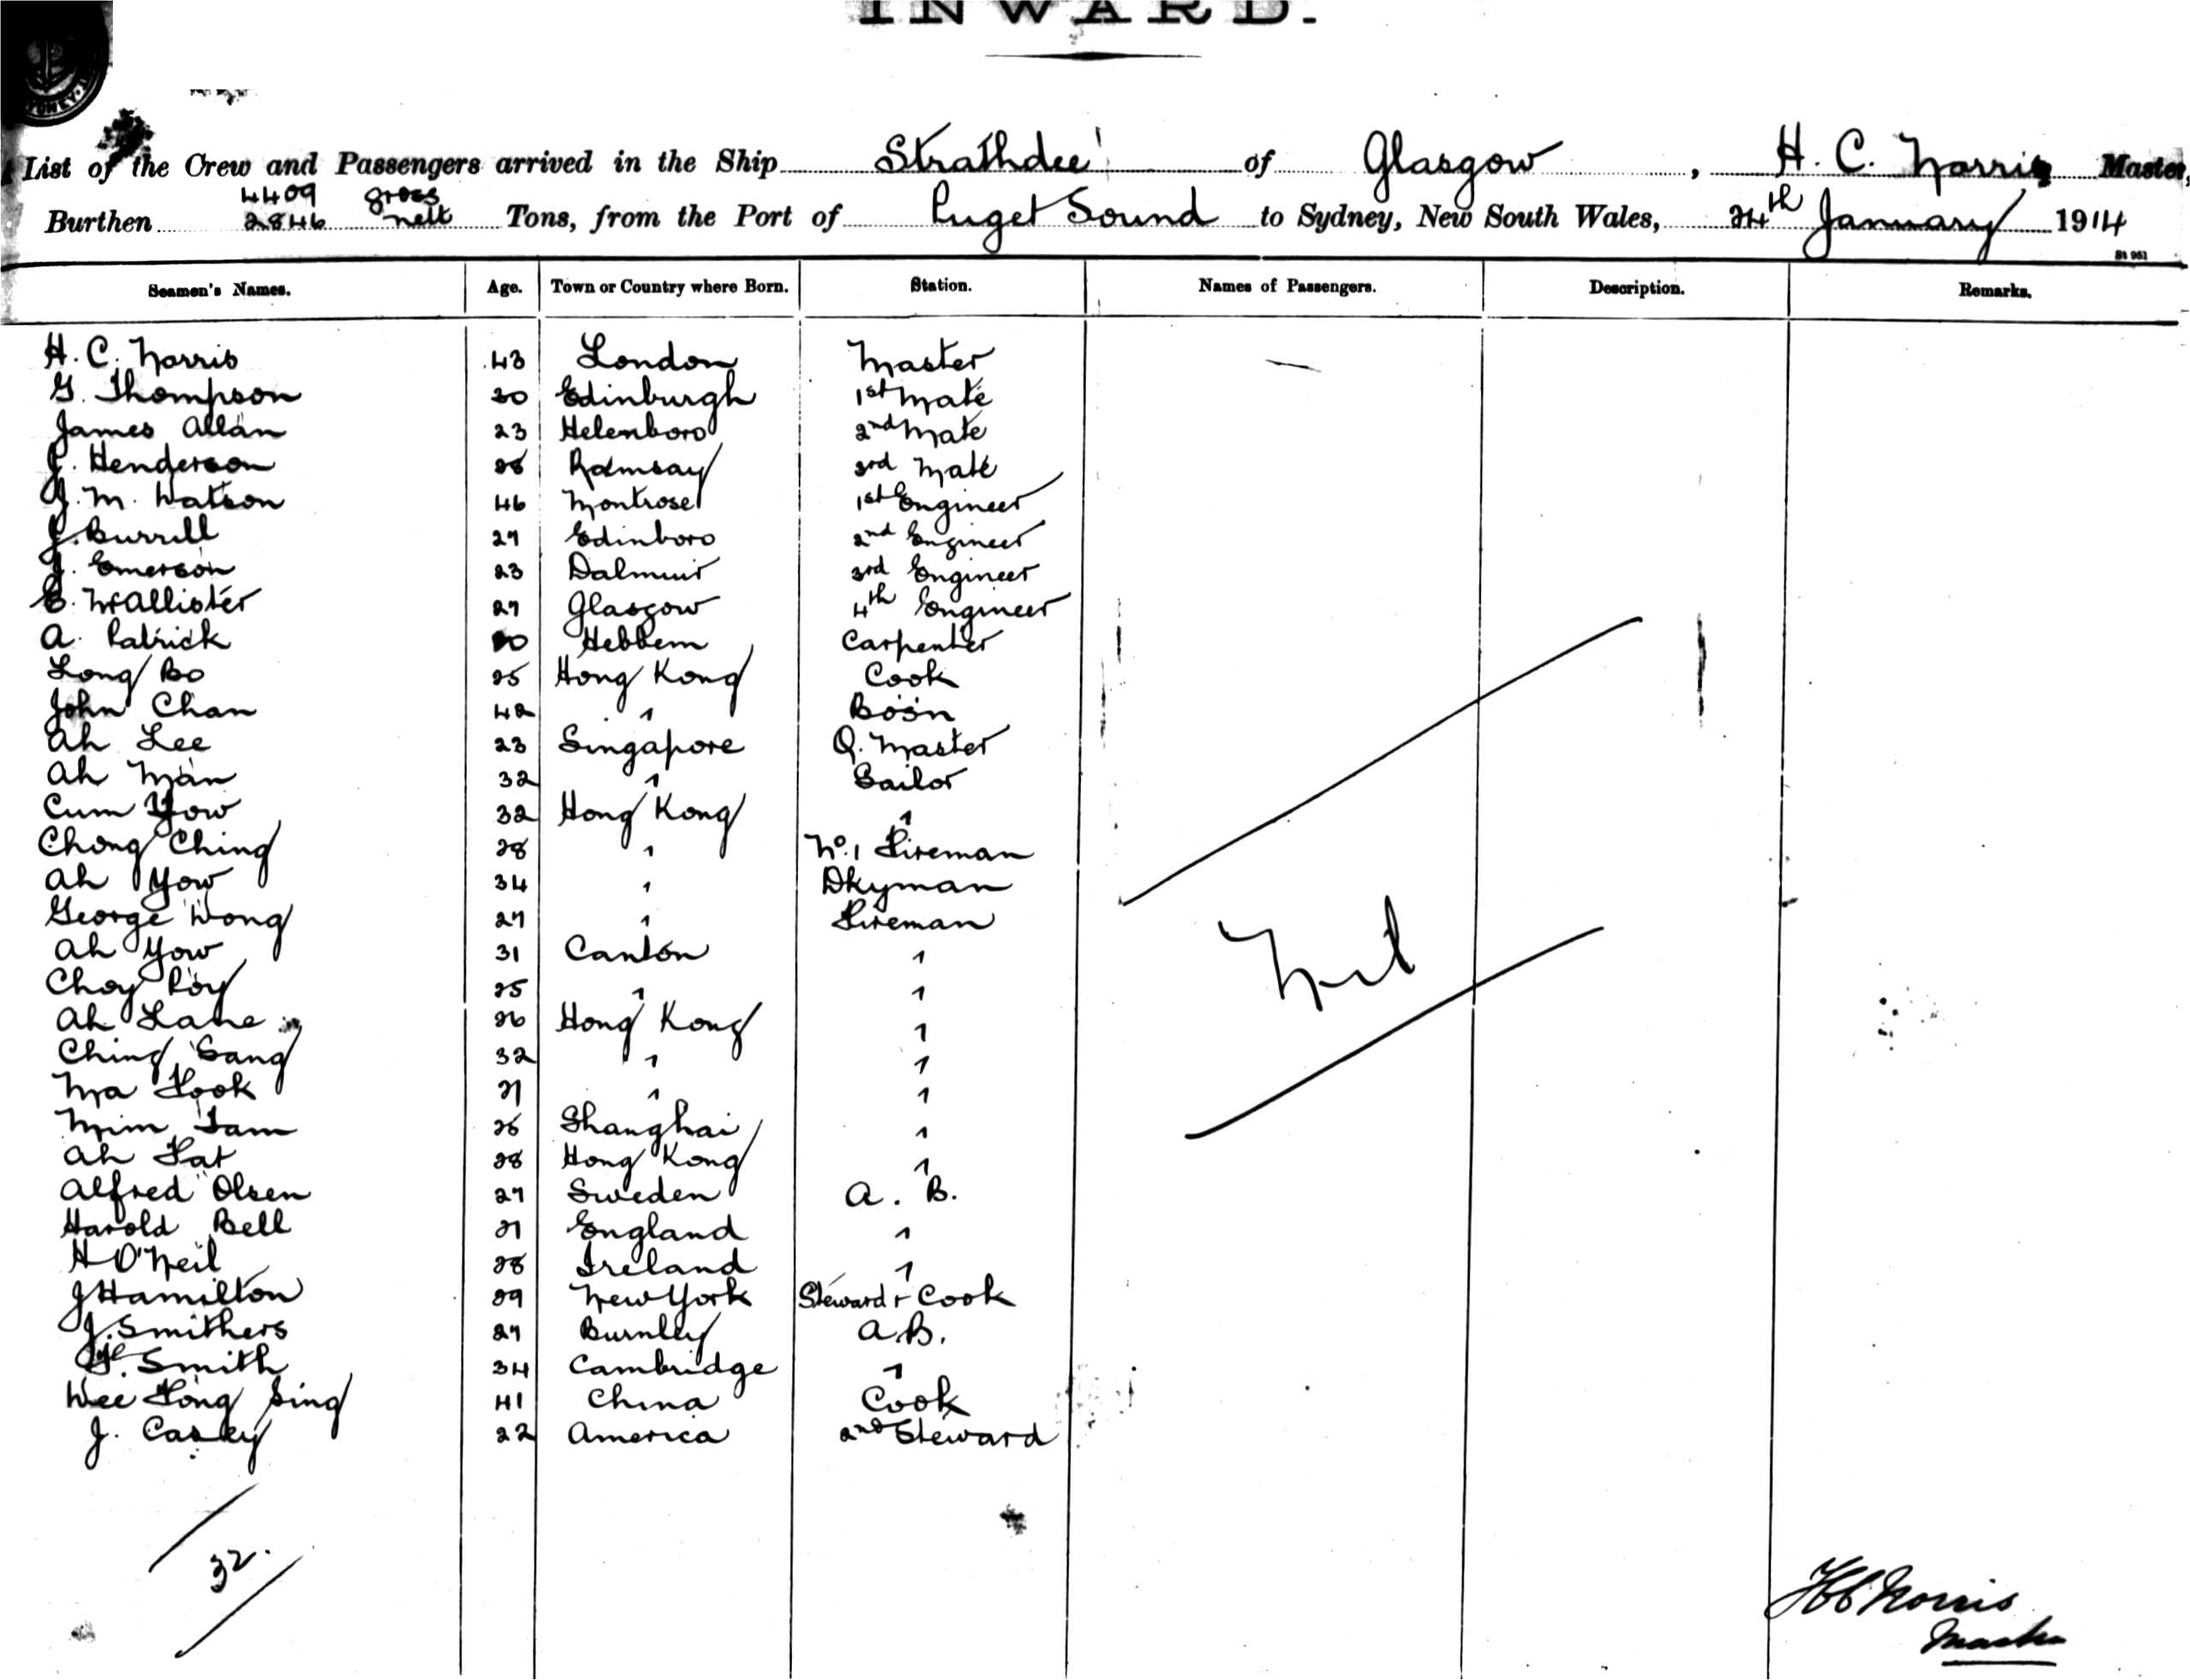 INWARD.
List of the Crew and Passengers arrived in the Ship Strathdee of Glasgow, H. C. Norris Master,
4409 gross
Burthen 2846 nett Tons, from the Port of Puget Sound to Sydney, New South Wales, 24th January 1914
Seamen's Names. Age. Town or Country where Born. Station. Names of Passengers. Description. Remarks.
H. C. Norris 43 London Master —
G. Thompson 30 Edinburgh 1st Mate
James Allan 23 Helenboro 2nd Mate
J. Henderson 28 Ramsay 3rd Mate
J. M. Watson 46 Montrose 1st Engineer
J. Burrill 27 Edinboro 2nd Engineer
J. Emerson 23 Dalmuir 3rd Engineer
E. McAllister 27 Glasgow 4th Engineer
A. Patrick Hebbem Carpenter
Long Bo 25 Hong Kong Cook
John Chan 42 " Bosn
Ah Lee 23 Singapore Q. Master
Ah Man 32 " Sailor
Cum Yow 32 Hong Kong "
Chong Ching 28 " No. 1 Fireman
Ah Yow 34 " Dkyman
George Wong 27 " Fireman
Ah Yow 31 Canton "
Choy Poy 25 " "
Ah Lane 26 Hong Kong "
Ching Sang 32 " "
Ma Fook 27 " "
Mim Tam 26 Shanghai "
Ah Fat 28 Hong Kong "
Nil
Alfred Olsen 27 Sweden A. B.
Harold Bell 21 England "
H O'Neil 28 Ireland "
J Hamilton 29 New York Steward + Cook
J. Smithers 27 Burnley A.B.
Smith 34 Cambridge "
Wee Fong Sing 41 China Cook
J. Casey 22 America 2nd Steward
32.
H C Norris
Master